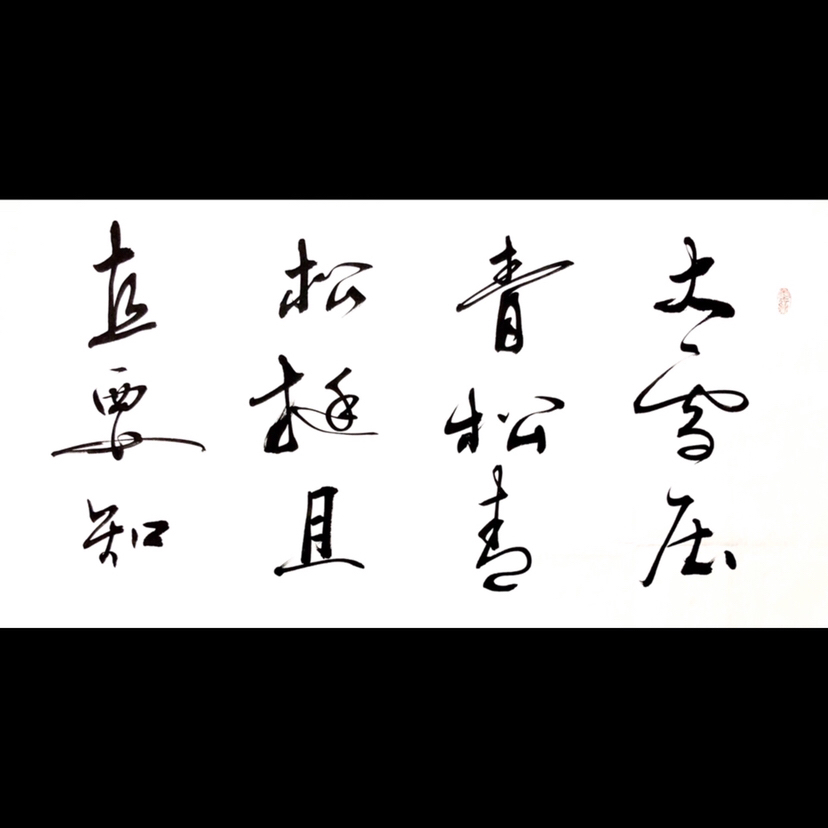 大雪压
青松青
松挺且
直要知